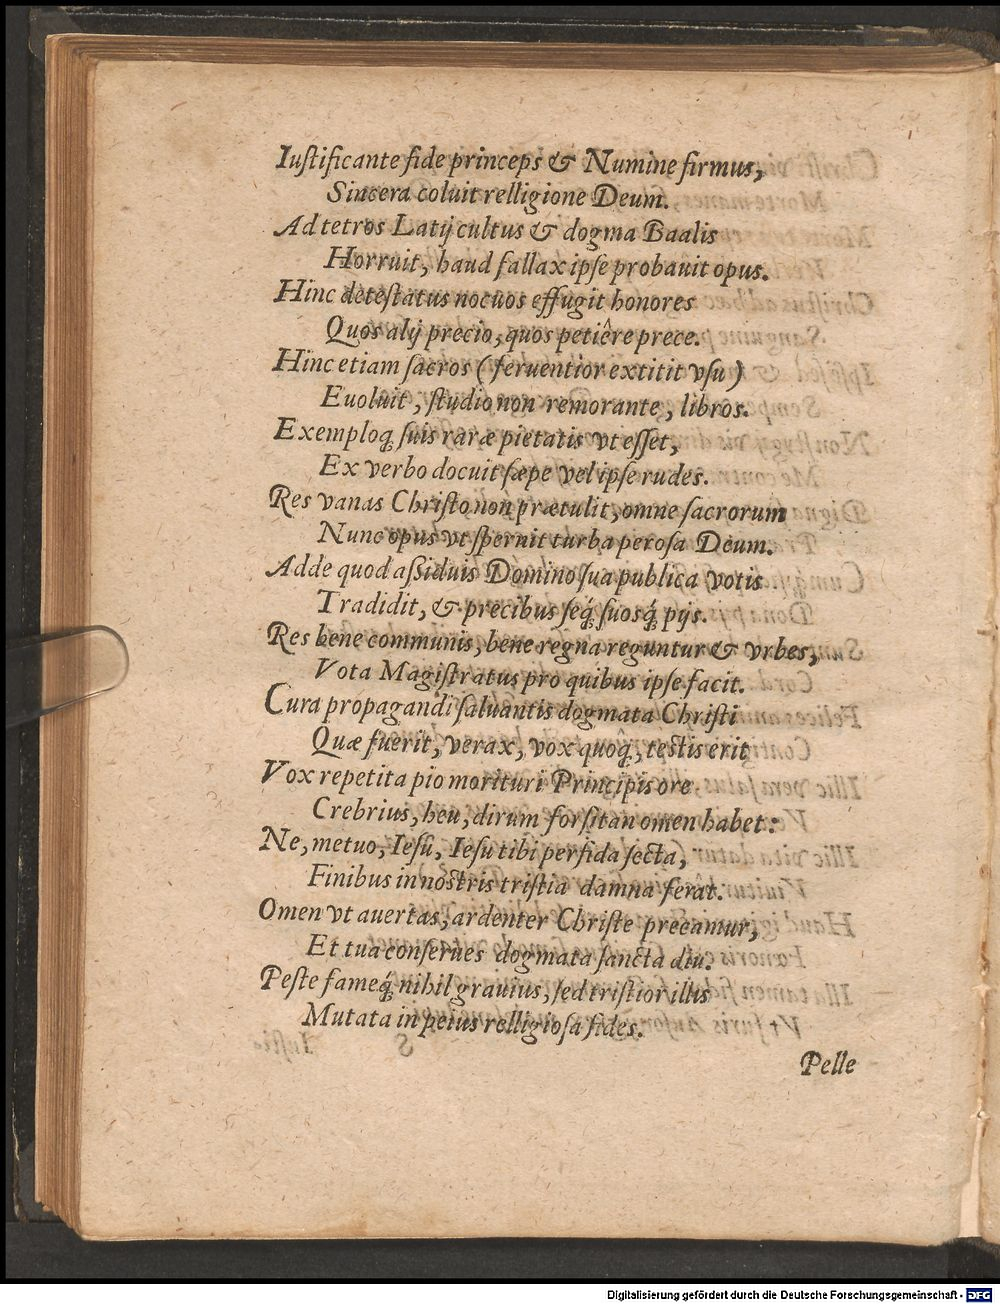 Iuſtificante fide princeps & Numine firmus,
Sincera coluit relligione Deum.
Ad tetros Latij cultus & dogma Baalis
Horruit, haud fallax ipſe probauit opus.
Hinc deteſtatus nocuos effugit honores
Quos alij precio, quos petiêre prece.
Hinc etiam ſacros (feruentior extitit vſu)
Euoluit, ſtudio non remorante, libros.
Exemploq́ ſuis raræ pietatis vt eſſet,
Ex verbo docuit ſæpe vel ipſe rudes.
Res vanas Chriſto non prætulit, omne ſacrorum
Nunc opus vt ſpernit turba peroſa Deum.
Adde quod aßiduis Domino ſua publica votis
Tradidit, & precibus ſeq́; ſuosq́; pijs.
Res bene communis, bene regna reguntur & vrbes,
Vota Magiſtratus pro quibus ipſe facit.
Cura propagandi ſaluantis dogmata Chriſti
Quæ fuerit, verax, vox quoq́, teſtis erit
Vox repetita pio morituri Principis ore
Crebrius, heu, dirum forſitan omen habet:
Ne, metuo, Ieſu, Ieſu tibi perfida ſecta,
Finibus in noſtris triſtia damna ferat.
Omen vt auertas, ardenter Chriſte precamur,
Et tua conſerues dogmata ſancta diu.
Peſte fameq́; nihil grauius, ſed triſtior illis
Mutata in peius relligioſa fides.
Pelle
Digitalisierung gefördert durch die Deutsche Forschungsgemeinschaft - DFG